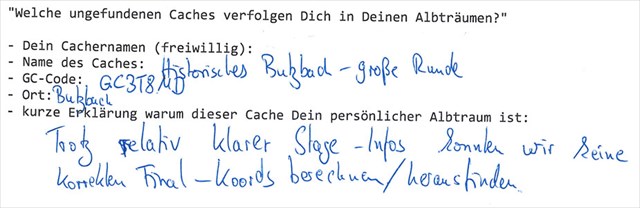 "Welche ungefundenen Caches verfolgen Dich in Deinen Albträumen?"
- Dein Cachernamen (freiwillig):
- Name des Caches: Historisches Butzbach - große Runde
- GC-Code: GC3T8MD
- Ort: Butzbach
- kurze Erklärung warum dieser Cache Dein persönlicher Albtraum ist:
Trotz relativ klarer Stage-Infos konnten wir keine
korrekten Final-Koords berechnen/herausfinden.